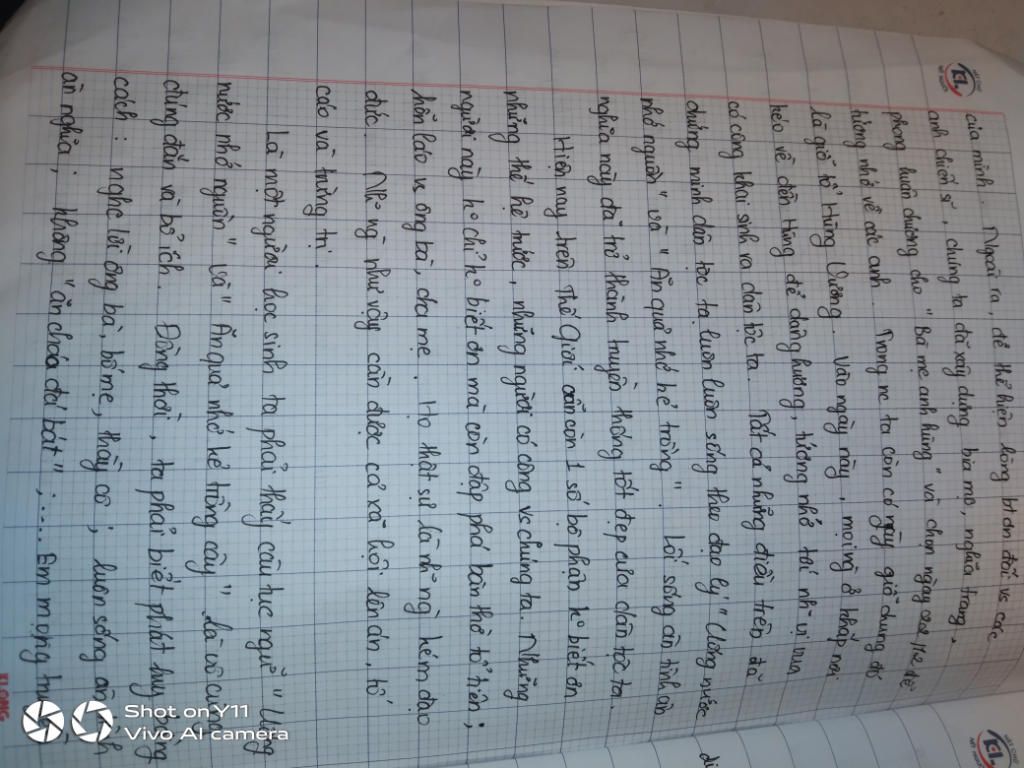 của mình. Ngoài ra, để thể hiện lòng bt ơn đối vs các
anh chiến sĩ, chúng ta đã xây dựng bia mộ, nghĩa trang,
phong huân chương cho "Bà mẹ anh hùng" và chọn ngày 22/12 để
tưởng nhớ về các anh. Trong nc ta còn có ngày giỗ chung đó
là giỗ tổ Hùng Vương. Vào ngày này, mọi ng ở khắp nơi
kéo về đền Hùng để dâng hương, tưởng nhớ tới nh vị vua
có công khai sinh ra dân tộc ta. Tất cả những điều trên đã
chứng minh dân tộc ta luôn luôn sống theo đạo lý "Uống nước
nhớ nguồn" và "Ăn quả nhớ kẻ trồng". Lối sống ân tình ân
nghĩa này đã trở thành truyền thống tốt đẹp của dân tộc ta.
Hiện nay trên Thế Giới vẫn còn 1 số bộ phận ko biết ơn
những thế hệ trước, những người có công vs chúng ta. Những
người này ko chỉ ko biết ơn mà còn đập phá bàn thờ tổ tiên;
hỗn láo vs ông bà, cha mẹ. Họ thật sự là những ng kém đạo
đức. Những ng như vậy cần được cả xã hội lên án, tố
cáo và trừng trị.
Là một người học sinh ta phải thấy câu tục ngữ "Uống
nước nhớ nguồn" và "Ăn quả nhớ kẻ trồng cây" là vô cùng
đúng đắn và bổ ích. Đồng thời, ta phải biết phát huy bằng
cách: nghe lời ông bà, bố mẹ, thầy cô; luôn sống ân tình
ân nghĩa; không "ăn cháo đá bát";.... Em mong
Shot on Y11
Vivo AI camera